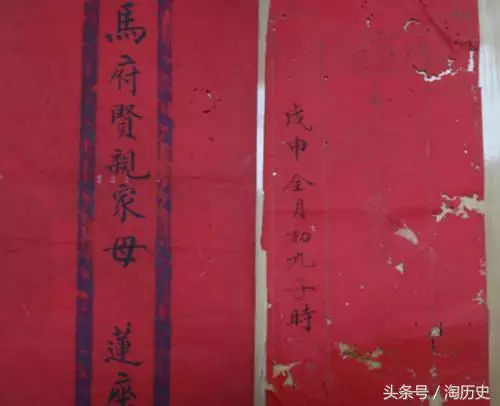 馬府賢親家母 蓮座
戊申全月初九子時
头条号 / 淘历史